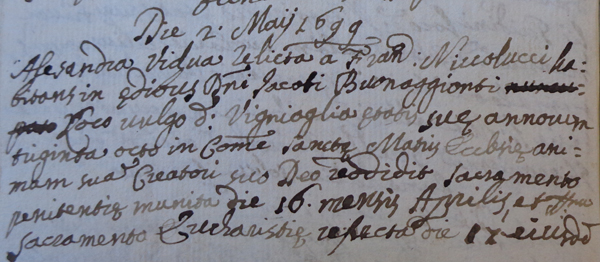 Die 2: Maij 1699
Alesandra Vidua relicta a Fran: Niccolucci ha=
bitans in ędibus Dni Jacobi Buonaggionti
loco vulgo d: Vigniaglia ętatis suę annorum
triginta octo in Come Sanctę Matris Ecclesię ani=
mam suā Creatori suo Deo reddidit sacramento
penitentię munita die 16. mensis Aprilis, et
sacramento Eucharistię refecta die 17 eiusdē